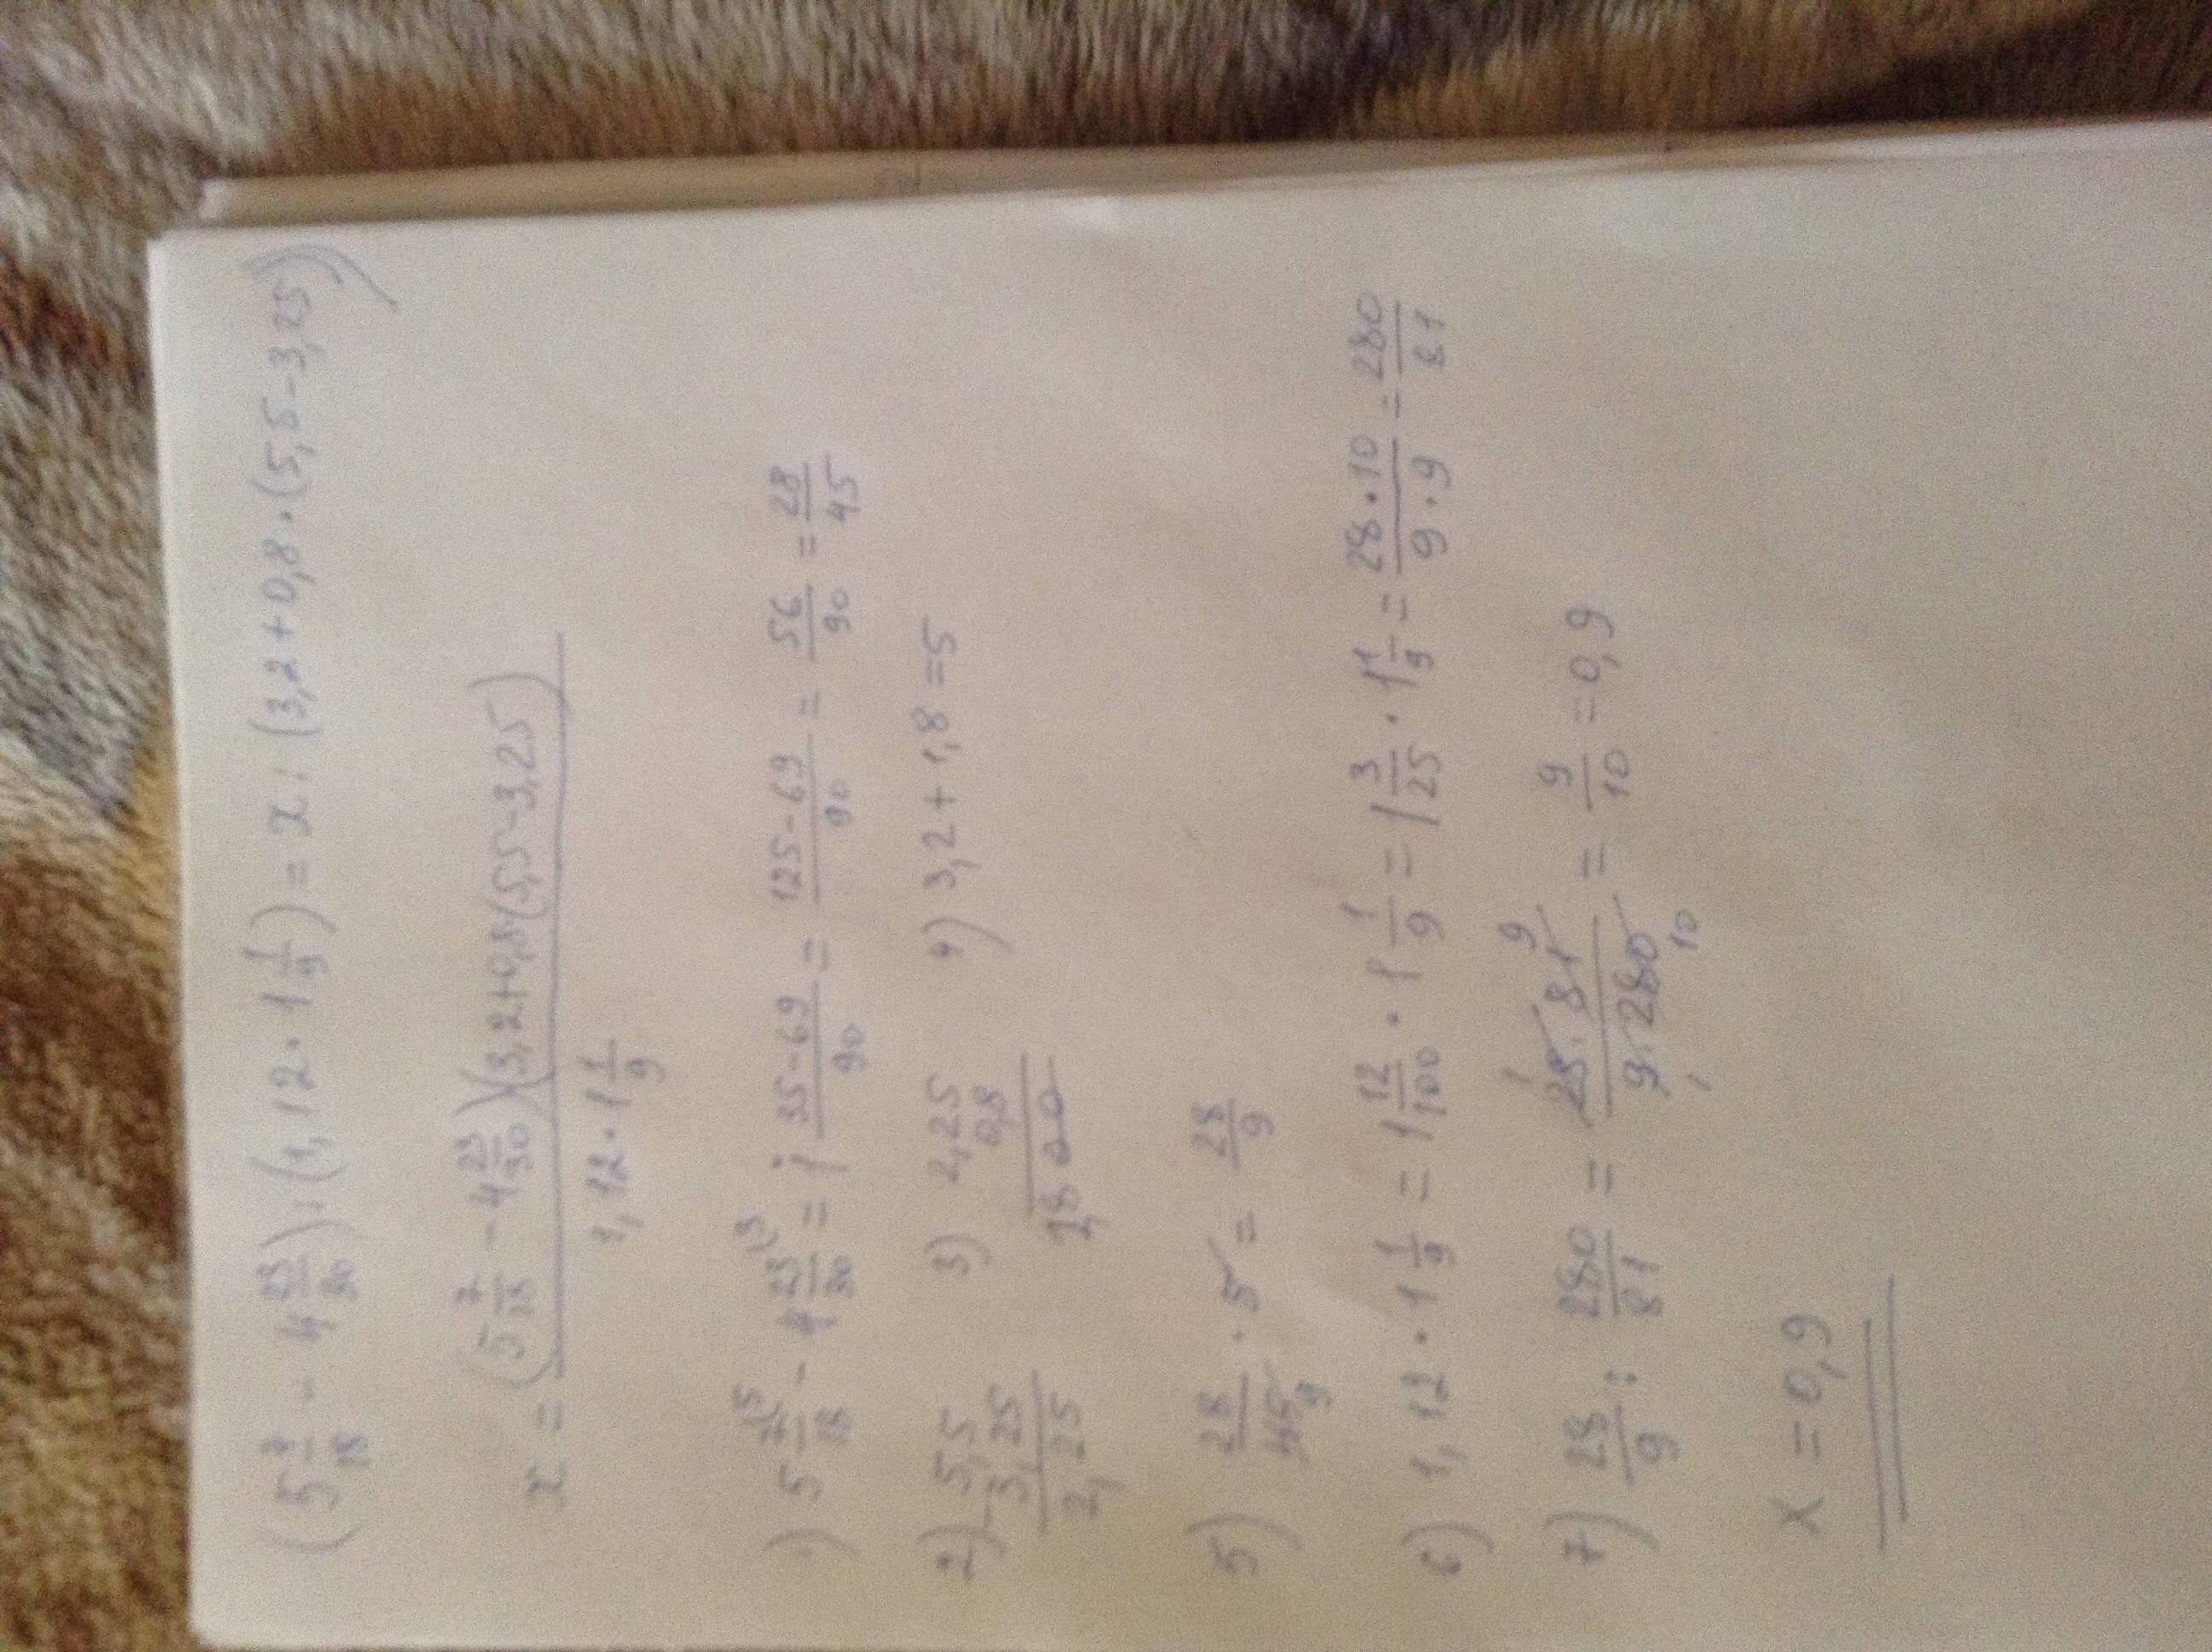 (5 7/18 - 4 23/30) : (1,12 · 1 1/9) = x : (3,2 + 0,8 · (5,5 - 3,25))
x = (5 7/18 - 4 23/30)(3,2+0,8·(5,5-3,25) / 1,12 · 1 1/9
1) 5 7/18 (5 - 4 23/30 (3 = 1 35-69/90 = 125-69/90 = 56/90 = 28/45
2) - 5,5 3,25 2,25 3) 2,25 0,8 1,800 4) 3,2 + 1,8 = 5
5) 28/45 9 · 5 = 28/9
6) 1,12 · 1 1/9 = 1 12/100 · 1 1/9 = 1 3/25 · 1 1/9 = 28 · 10/9 · 9 = 280/81
7) 28/9 : 280/81 = 28 · 81/9 · 280 1 9 1 10 = 9/10 = 0,9
x = 0,9